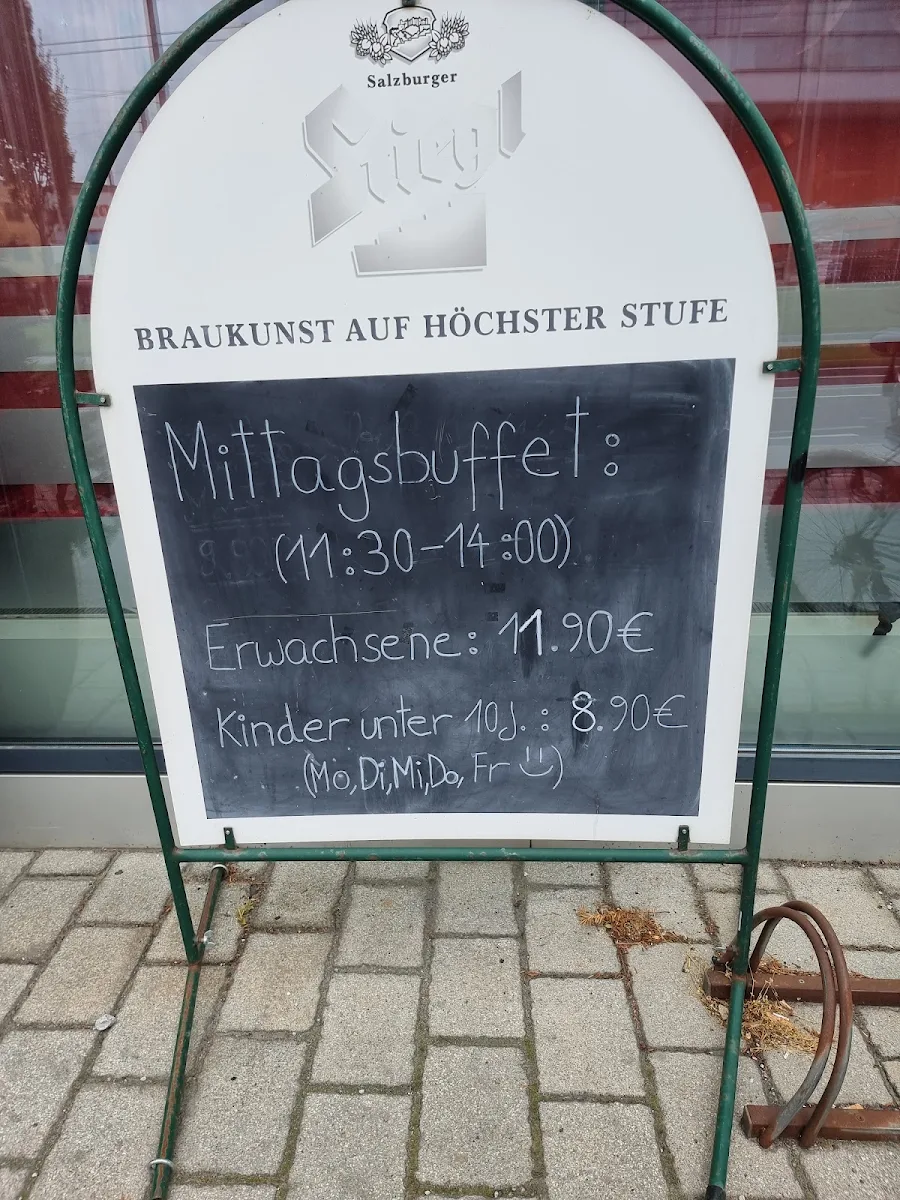 Salzburger
Stiegl
BRAUKUNST AUF HÖCHSTER STUFE
Mittagsbuffet:
(11:30-14:00)
Erwachsene: 11.90€
Kinder unter 10J.: 8.90€
(Mo,Di,Mi,Do,Fr)